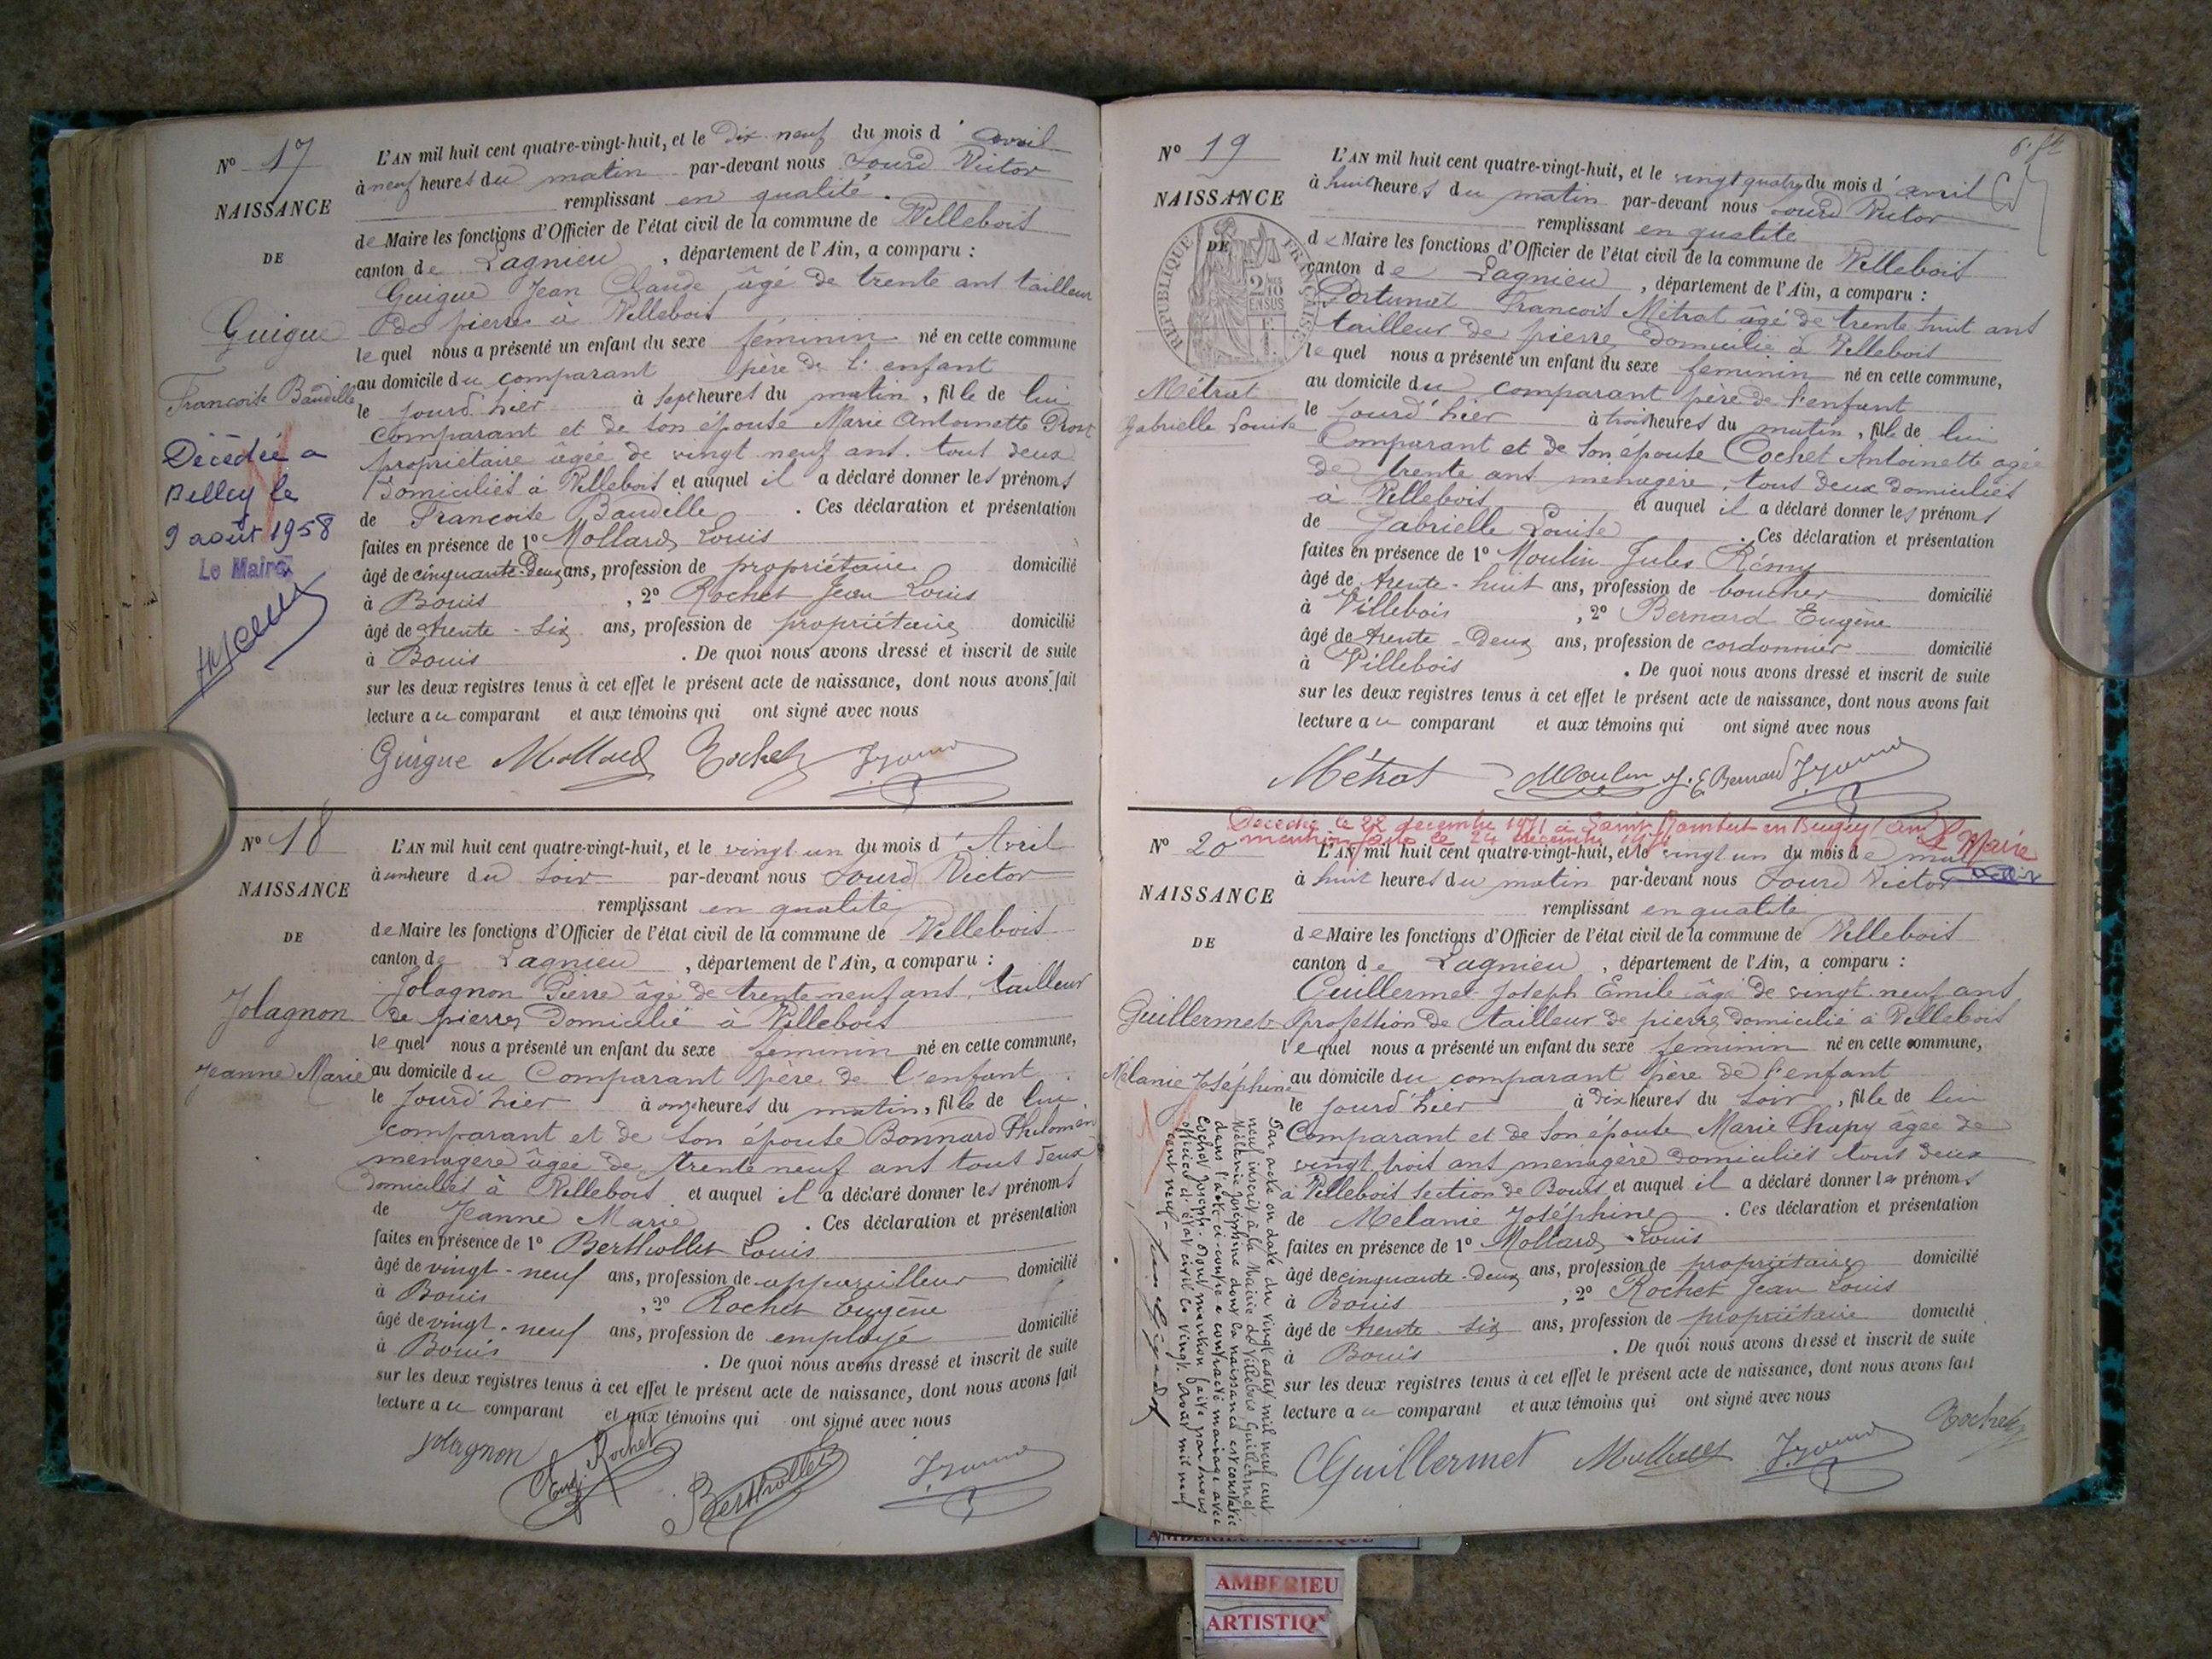 N° 17
NAISSANCE
DE
Guigue
Francoise Baudille
Décédée a
Belley le
9 août 1958
Le Maire
L'AN mil huit cent quatre-vingt-huit, et le Dix neuf du mois d'avril
à neuf heures du matin par-devant nous Lourd Victor
remplissant en qualité
de Maire les fonctions d'Officier de l'état civil de la commune de Villebois
canton de Lagnieu, département de l'Ain, a comparu :
Guigue Jean Claude âgé de trente ans tailleur
de pierres à Villebois
lequel nous a présenté un enfant du sexe féminin né en cette commune
au domicile du comparant père de l'enfant
le jourd'hier à sept heures du matin, fille de lui
comparant et de son épouse Marie Antoinette Prost
propriétaire âgée de vingt neuf ans. tout deux
domiciliés à Villebois et auquel il a déclaré donner les prénoms
de Francoise Baudille. Ces déclaration et présentation
faites en présence de 1° Mollard Louis
âgé de cinquante-deux ans, profession de propriétaire domicilié
à Bouis, 2° Rochet Jean Louis
âgé de trente-six ans, profession de propriétaire domicilié
à Bouis. De quoi nous avons dressé et inscrit de suite
sur les deux registres tenus à cet effet le présent acte de naissance, dont nous avons fait
lecture au comparant et aux témoins qui ont signé avec nous
Guigue Mollard Rochet
N° 18
NAISSANCE
DE
Jolagnon
Jeanne Marie
L'AN mil huit cent quatre-vingt-huit, et le vingt un du mois d'Avril
à une heure du soir par-devant nous Lourd Victor
remplissant en qualité
de Maire les fonctions d'Officier de l'état civil de la commune de Villebois
canton de Lagnieu, département de l'Ain, a comparu :
Jolagnon Pierre âgé de trente neuf ans, tailleur
de pierres domicilié à Villebois
lequel nous a présenté un enfant du sexe féminin né en cette commune,
au domicile du Comparant père de l'enfant
le jourd'hier à onze heures du matin, fille de lui
comparant et de son épouse Bonnard Philomène
menagère âgée de trente neuf ans tout deux
domiciliés à Villebois et auquel il a déclaré donner les prénoms
de Jeanne Marie. Ces déclaration et présentation
faites en présence de 1° Berthollet Louis
âgé de vingt-neuf ans, profession de appareilleur domicilié
à Bouis, 2° Rochet Eugène
âgé de vingt-neuf ans, profession de employé domicilié
à Bouis. De quoi nous avons dressé et inscrit de suite
sur les deux registres tenus à cet effet le présent acte de naissance, dont nous avons fait
lecture au comparant et aux témoins qui ont signé avec nous
Jolagnon Rochet Berthollet
N° 19
NAISSANCE
DE
REPUBLIQUE FRANÇAISE
Métrat
Gabrielle Louise
L'AN mil huit cent quatre-vingt-huit, et le vingt quatre du mois d'avril
à huit heures du matin par-devant nous Lourd Victor
remplissant en qualité
de Maire les fonctions d'Officier de l'état civil de la commune de Villebois
canton de Lagnieu, département de l'Ain, a comparu :
François Métrat âgé de trente huit ans
tailleur de pierres domicilié à Villebois
lequel nous a présenté un enfant du sexe feminin né en cette commune,
au domicile du comparant père de l'enfant
le jourd'hier à trois heures du matin, fille de lui
Comparant et de son épouse Cochet Antoinette agée
de trente ans menagère, tous deux domiciliés
à Villebois et auquel il a déclaré donner les prénoms
de Gabrielle Louise. Ces déclaration et présentation
faites en présence de 1° Moulin Jules Rémy
âgé de trente-huit ans, profession de boucher domicilié
à Villebois, 2° Bernard Eugène
âgé de trente-deux ans, profession de cordonnier domicilié
à Villebois. De quoi nous avons dressé et inscrit de suite
sur les deux registres tenus à cet effet le présent acte de naissance, dont nous avons fait
lecture au comparant et aux témoins qui ont signé avec nous
Métrat Moulin J. E Bernard
Décédée le 22 decembre 1971 à Saint Rambert en Bugey (Ain)
mention faite le 24 decembre 1971 Le Maire
N° 20
NAISSANCE
DE
Guillermet
Mélanie Joséphine
L'AN mil huit cent quatre-vingt-huit, et le vingt un du mois de mai
à huit heures du matin par-devant nous Lourd Victor
remplissant en qualité
de Maire les fonctions d'Officier de l'état civil de la commune de Villebois
canton de Lagnieu, département de l'Ain, a comparu :
Guillermet Joseph Emile âgé de vingt-neuf ans
profession de tailleur de pierres domicilié à Villebois
lequel nous a présenté un enfant du sexe feminin né en cette commune,
au domicile du comparant père de l'enfant
le jourd'hier à dix heures du soir, fille de lui
Comparant et de son épouse Marie Chapy âgée de
vingt trois ans menagère domiciliés tous deux
à Villebois section de Bouis et auquel il a déclaré donner les prénoms
de Melanie Joséphine. Ces déclaration et présentation
faites en présence de 1° Mollard Louis
âgé de cinquante-deux ans, profession de propriétaire domicilié
à Bouis, 2° Rochet Jean Louis
âgé de trente-six ans, profession de propriétaire domicilié
à Bouis. De quoi nous avons dressé et inscrit de suite
sur les deux registres tenus à cet effet le présent acte de naissance, dont nous avons fait
lecture au comparant et aux témoins qui ont signé avec nous
Guillermet Mollard Rochet
Par acte en date du vingt août mil neuf cent
neuf inscrit à la Mairie de Villebois Guillermet
Mélanie Joséphine dont la naissance est constatée
dans l'acte ci-contre a contracté mariage avec
Cochet Joseph. Dont mention faite par nous
officier d'état civil le vingt août mil neuf
cent neuf
AMBERIEU ARTISTIQUE
AMBERIEU
ARTISTIQ